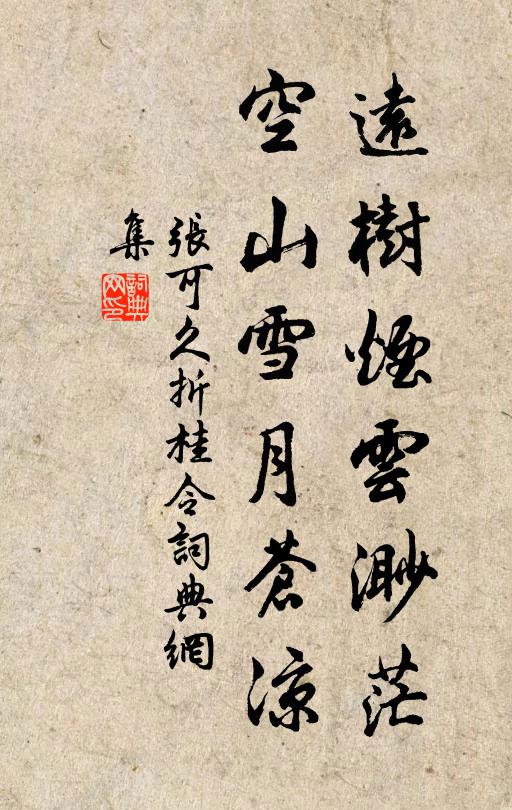 遠樹煙雲渺茫
空山雪月蒼涼
張可久折桂令詞典網
集
詞典網印